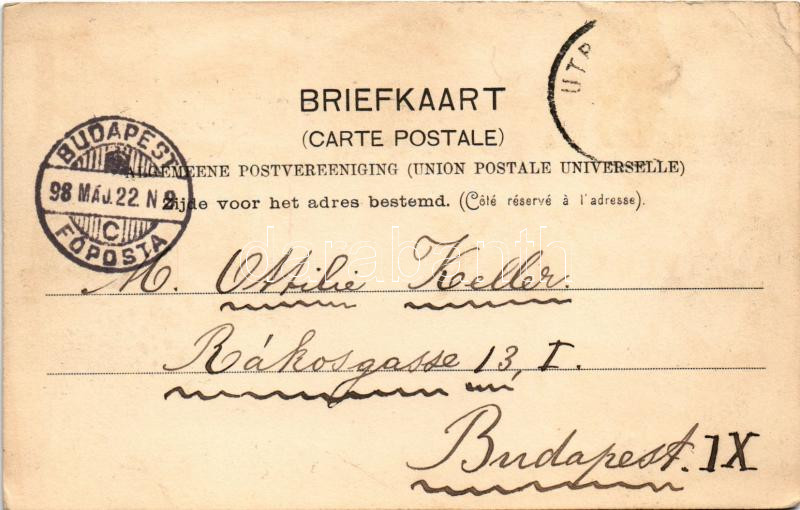 UTR
BRIEFKAART
(CARTE POSTALE)
ALGEMEENE POSTVEREENIGING (UNION POSTALE UNIVERSELLE)
Zijde voor het adres bestemd. (Côté réservé à l'adresse).
BUDAPEST
98 MÁJ. 22. N 2
C
FŐPOSTA
darabanth
M. Ottilie Keller.
Rákosgasse 13, I.
Budapest. IX